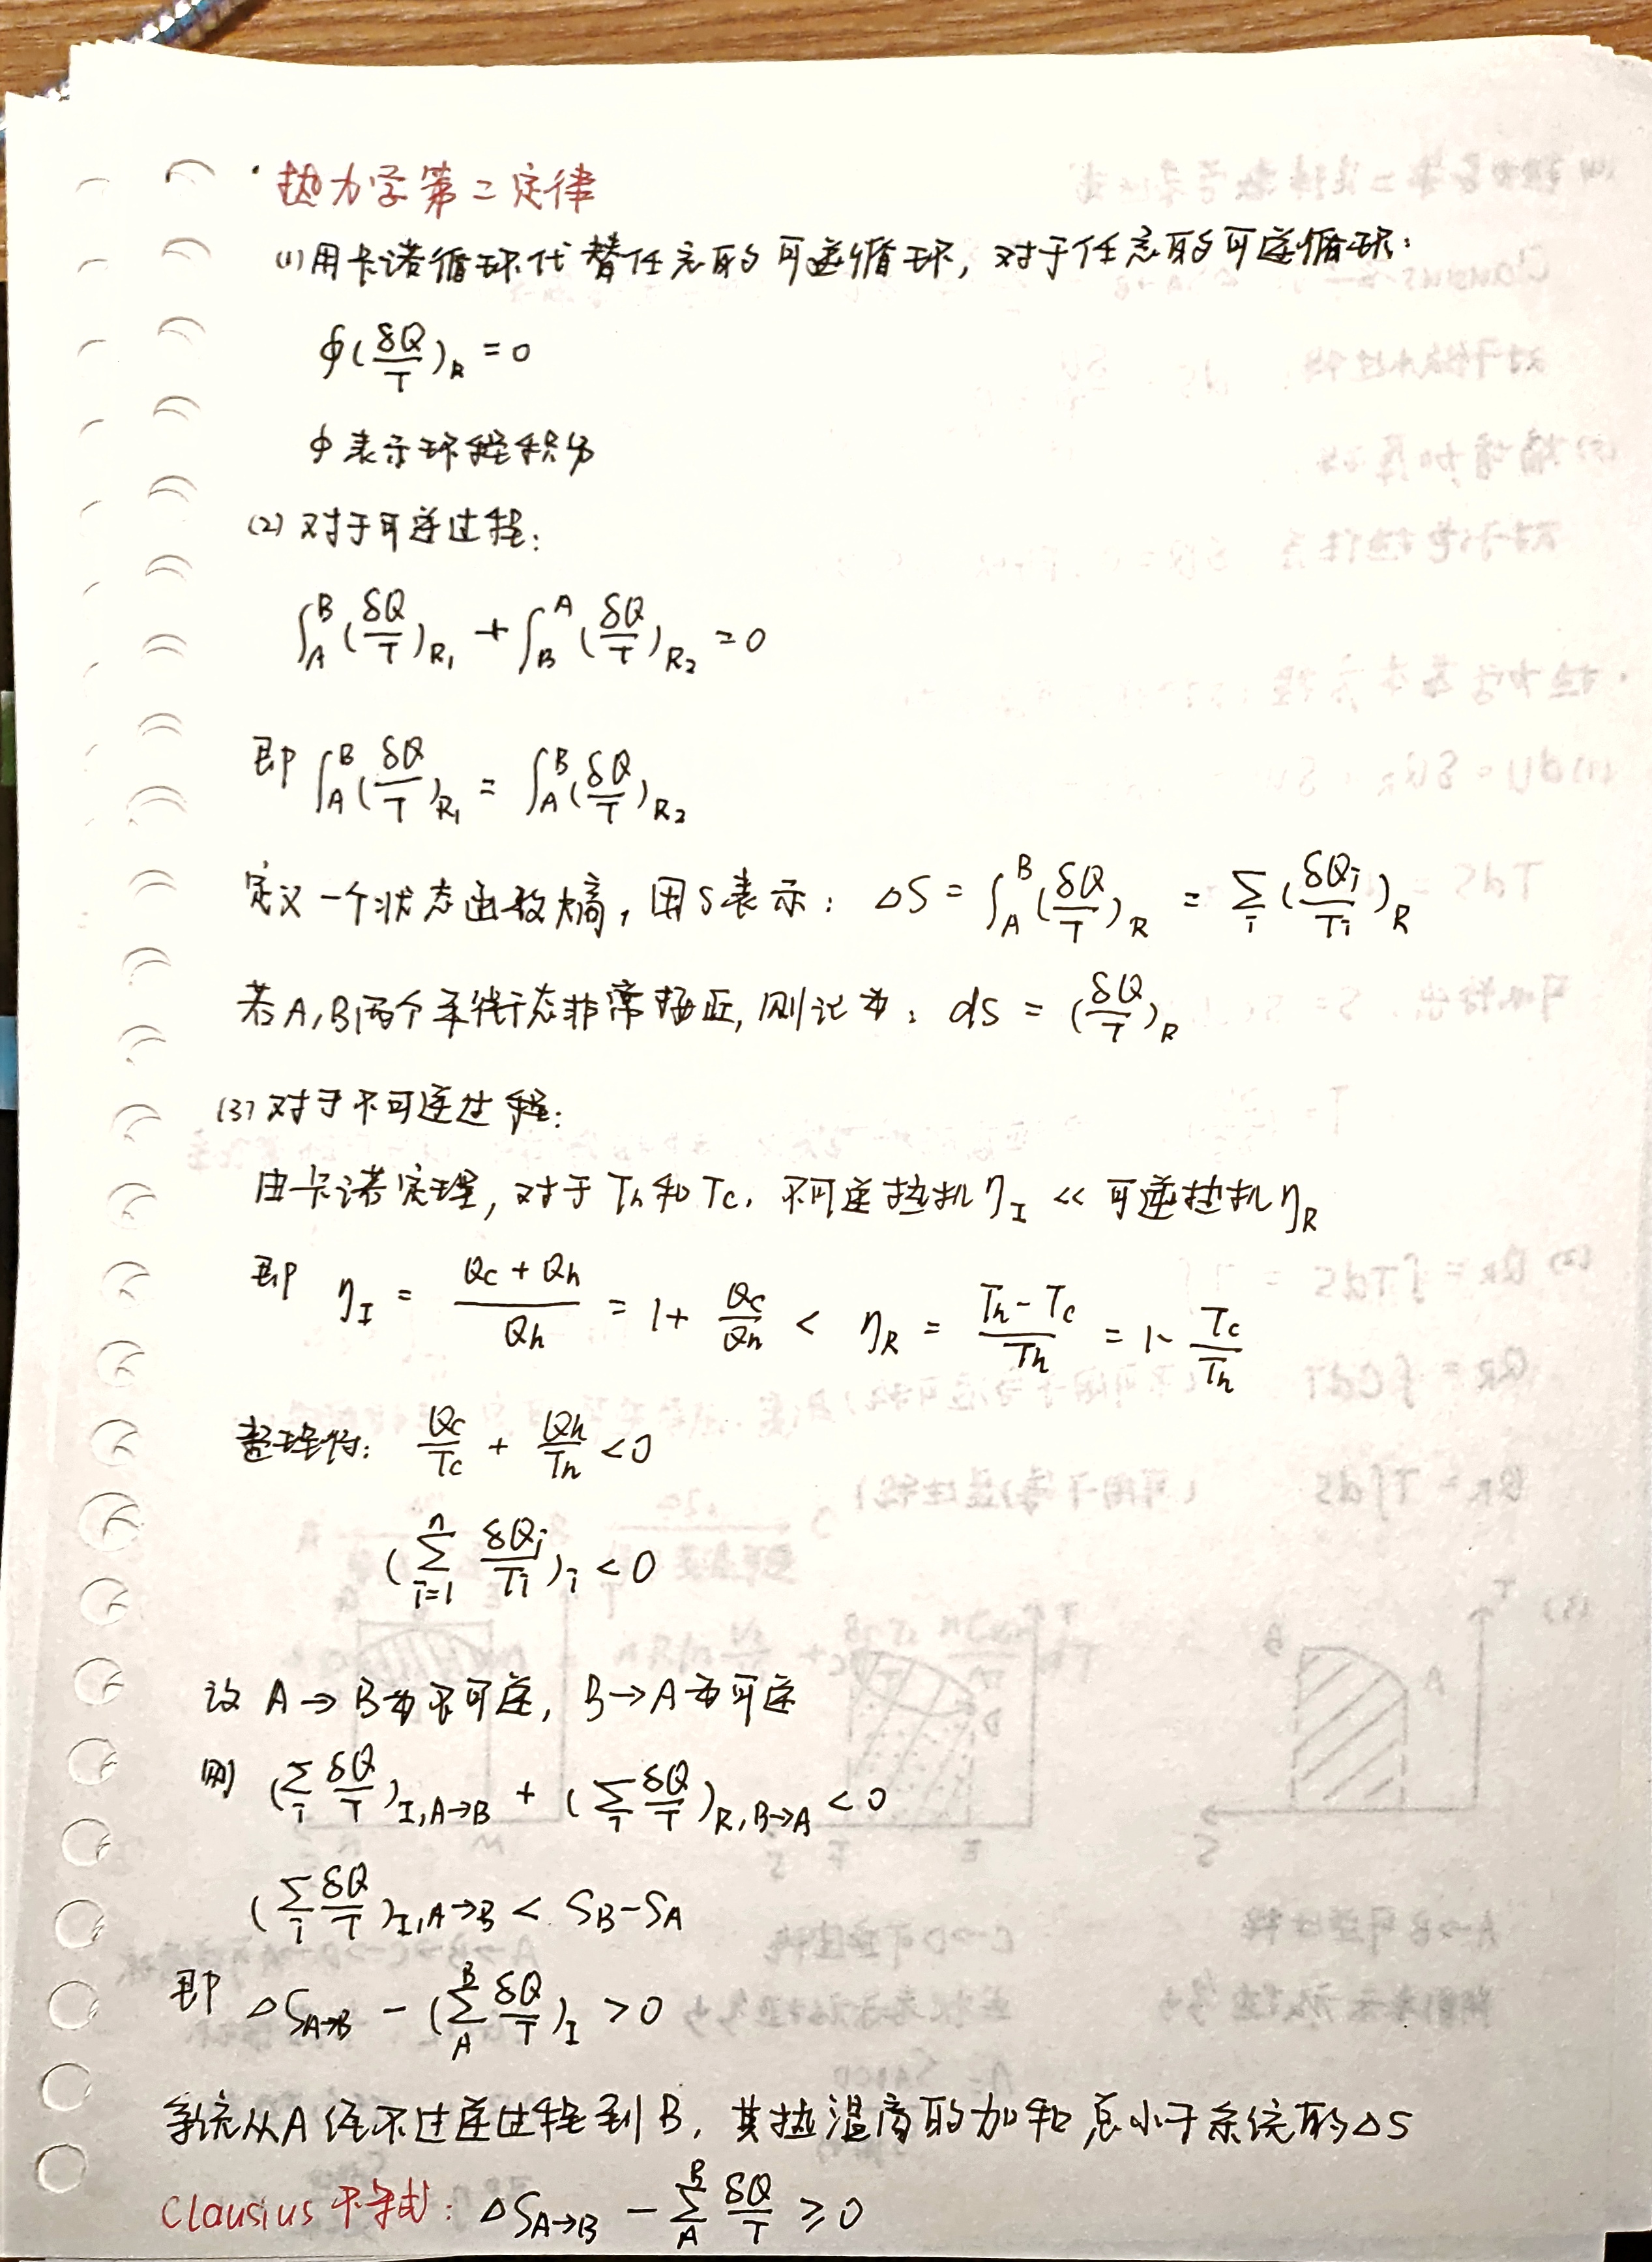 ·热力学第二定律
(1)用卡诺循环代替任意的可逆循环,对于任意的可逆循环:
∮(δQ/T)_R = 0
∮表示环程积分
(2)对于可逆过程:
∫_A^B(δQ/T)_R₁ + ∫_B^A(δQ/T)_R₂ = 0
即 ∫_A^B(δQ/T)_R₁ = ∫_A^B(δQ/T)_R₂
定义一个状态函数熵,用S表示: ΔS = ∫_A^B(δQ/T)_R = Σ_i(δQi/Ti)_R
若A,B两个平衡态非常接近,则记为: dS = (δQ/T)_R
(3)对于不可逆过程:
由卡诺定理,对于Th和Tc.不可逆热机η_I << 可逆热机η_R
即 η_I = (Qc + Qh)/Qh = 1 + Qc/Qh < η_R = (Th - Tc)/Th = 1 - Tc/Th
整理得: Qc/Tc + Qh/Th < 0
(Σ_{i=1}^n δQi/Ti)_i < 0
设 A→B为不可逆, B→A为可逆
则 (Σ_i δQ/T)_{I,A→B} + (Σ_i δQ/T)_{R,B→A} < 0
(Σ_i δQ/T)_{I,A→B} < S_B - S_A
即 ΔS_{A→B} - (Σ_A^B δQ/T)_I > 0
系统从A经不过逆过程到B,其热温商的加和总小于系统的ΔS
Clausius不等式: ΔS_{A→B} - Σ_A^B δQ/T ≥ 0